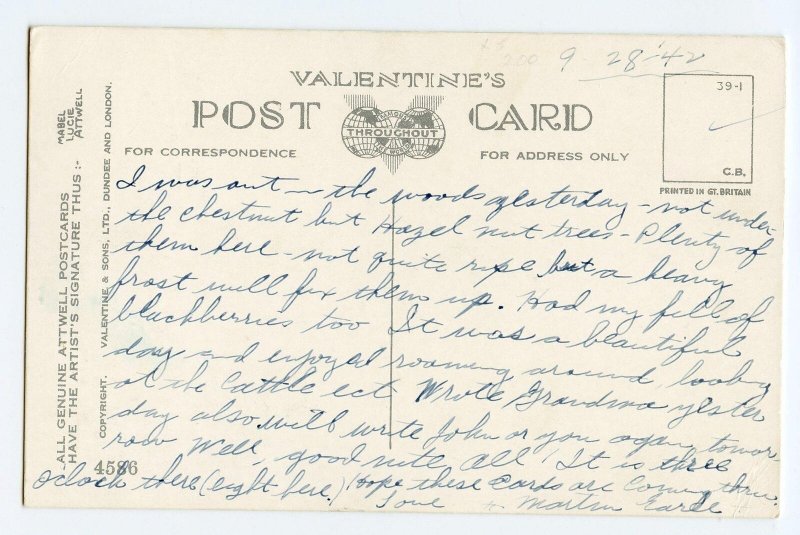 9-28-42
VALENTINE'S
POST CARD
THROUGHOUT
39-1
C.B.
FOR CORRESPONDENCE
FOR ADDRESS ONLY
PRINTED IN GT. BRITAIN
ALL GENUINE ATTWELL POSTCARDS
HAVE THE ARTIST'S SIGNATURE THUS :-
MABEL
LUCIE
ATTWELL
COPYRIGHT. VALENTINE & SONS, LTD., DUNDEE AND LONDON.
I was out in the woods yesterday - not under
the chestnut but Hazel nut trees - Plenty of
them here - not quite ripe but a heavy
frost will fix them up. Had my fill of
blackberries too It was a beautiful
day and enjoyed roaming around looking
at the Cattle ect. Wrote Grandma yester
day also will write John or you again tomor-
row Well, good nite all! It is three
oclock there (eight here.) Hope these cards are coming thru.
Love Martin Earle
4586